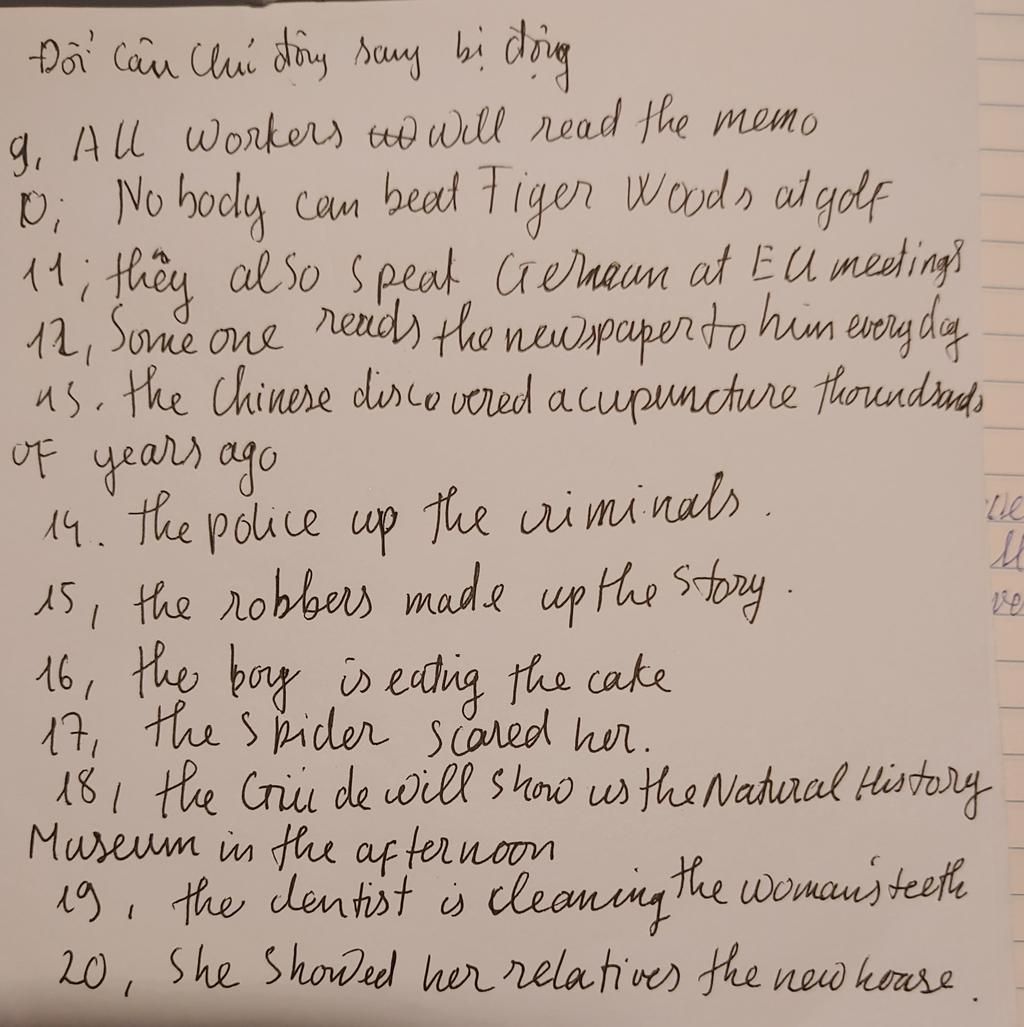 Đổi câu chủ động sang bị động
9, All workers will read the memo
10; Nobody can beat Tiger Woods at golf
11; they also speak German at EU meetings
12, Someone reads the newspaper to him everyday
13. the Chinese discovered acupuncture thoundsands
of years ago
14. the police up the criminals.
15, the robbers made up the story.
16, the boy is eating the cake
17, the spider scared her.
18, the Guide will show us the Natural History
Museum in the afternoon
19, the dentist is cleaning the woman's teeth
20, she showed her relatives the new house.